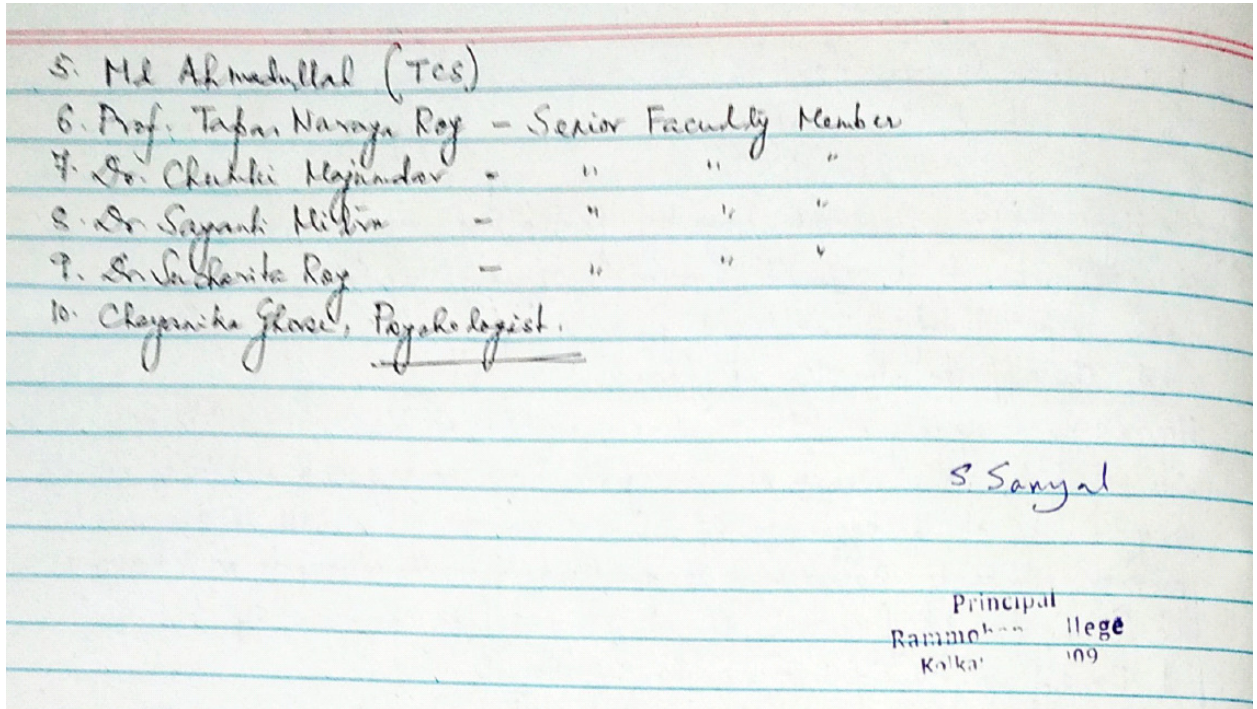 5. Md Ahmadullah (TCS)
6. Prof. Tapan Narayan Roy - Senior Faculty Member
7. Dr. Chumki Majumdar - " " "
8. Dr Sayanti Mitra - " " "
9. Dr. Sucharita Roy - " " "
10. Chayanika Ghose, Psychologist.
S. Sanyal
Principal
Rammoh llege
Kolka 09